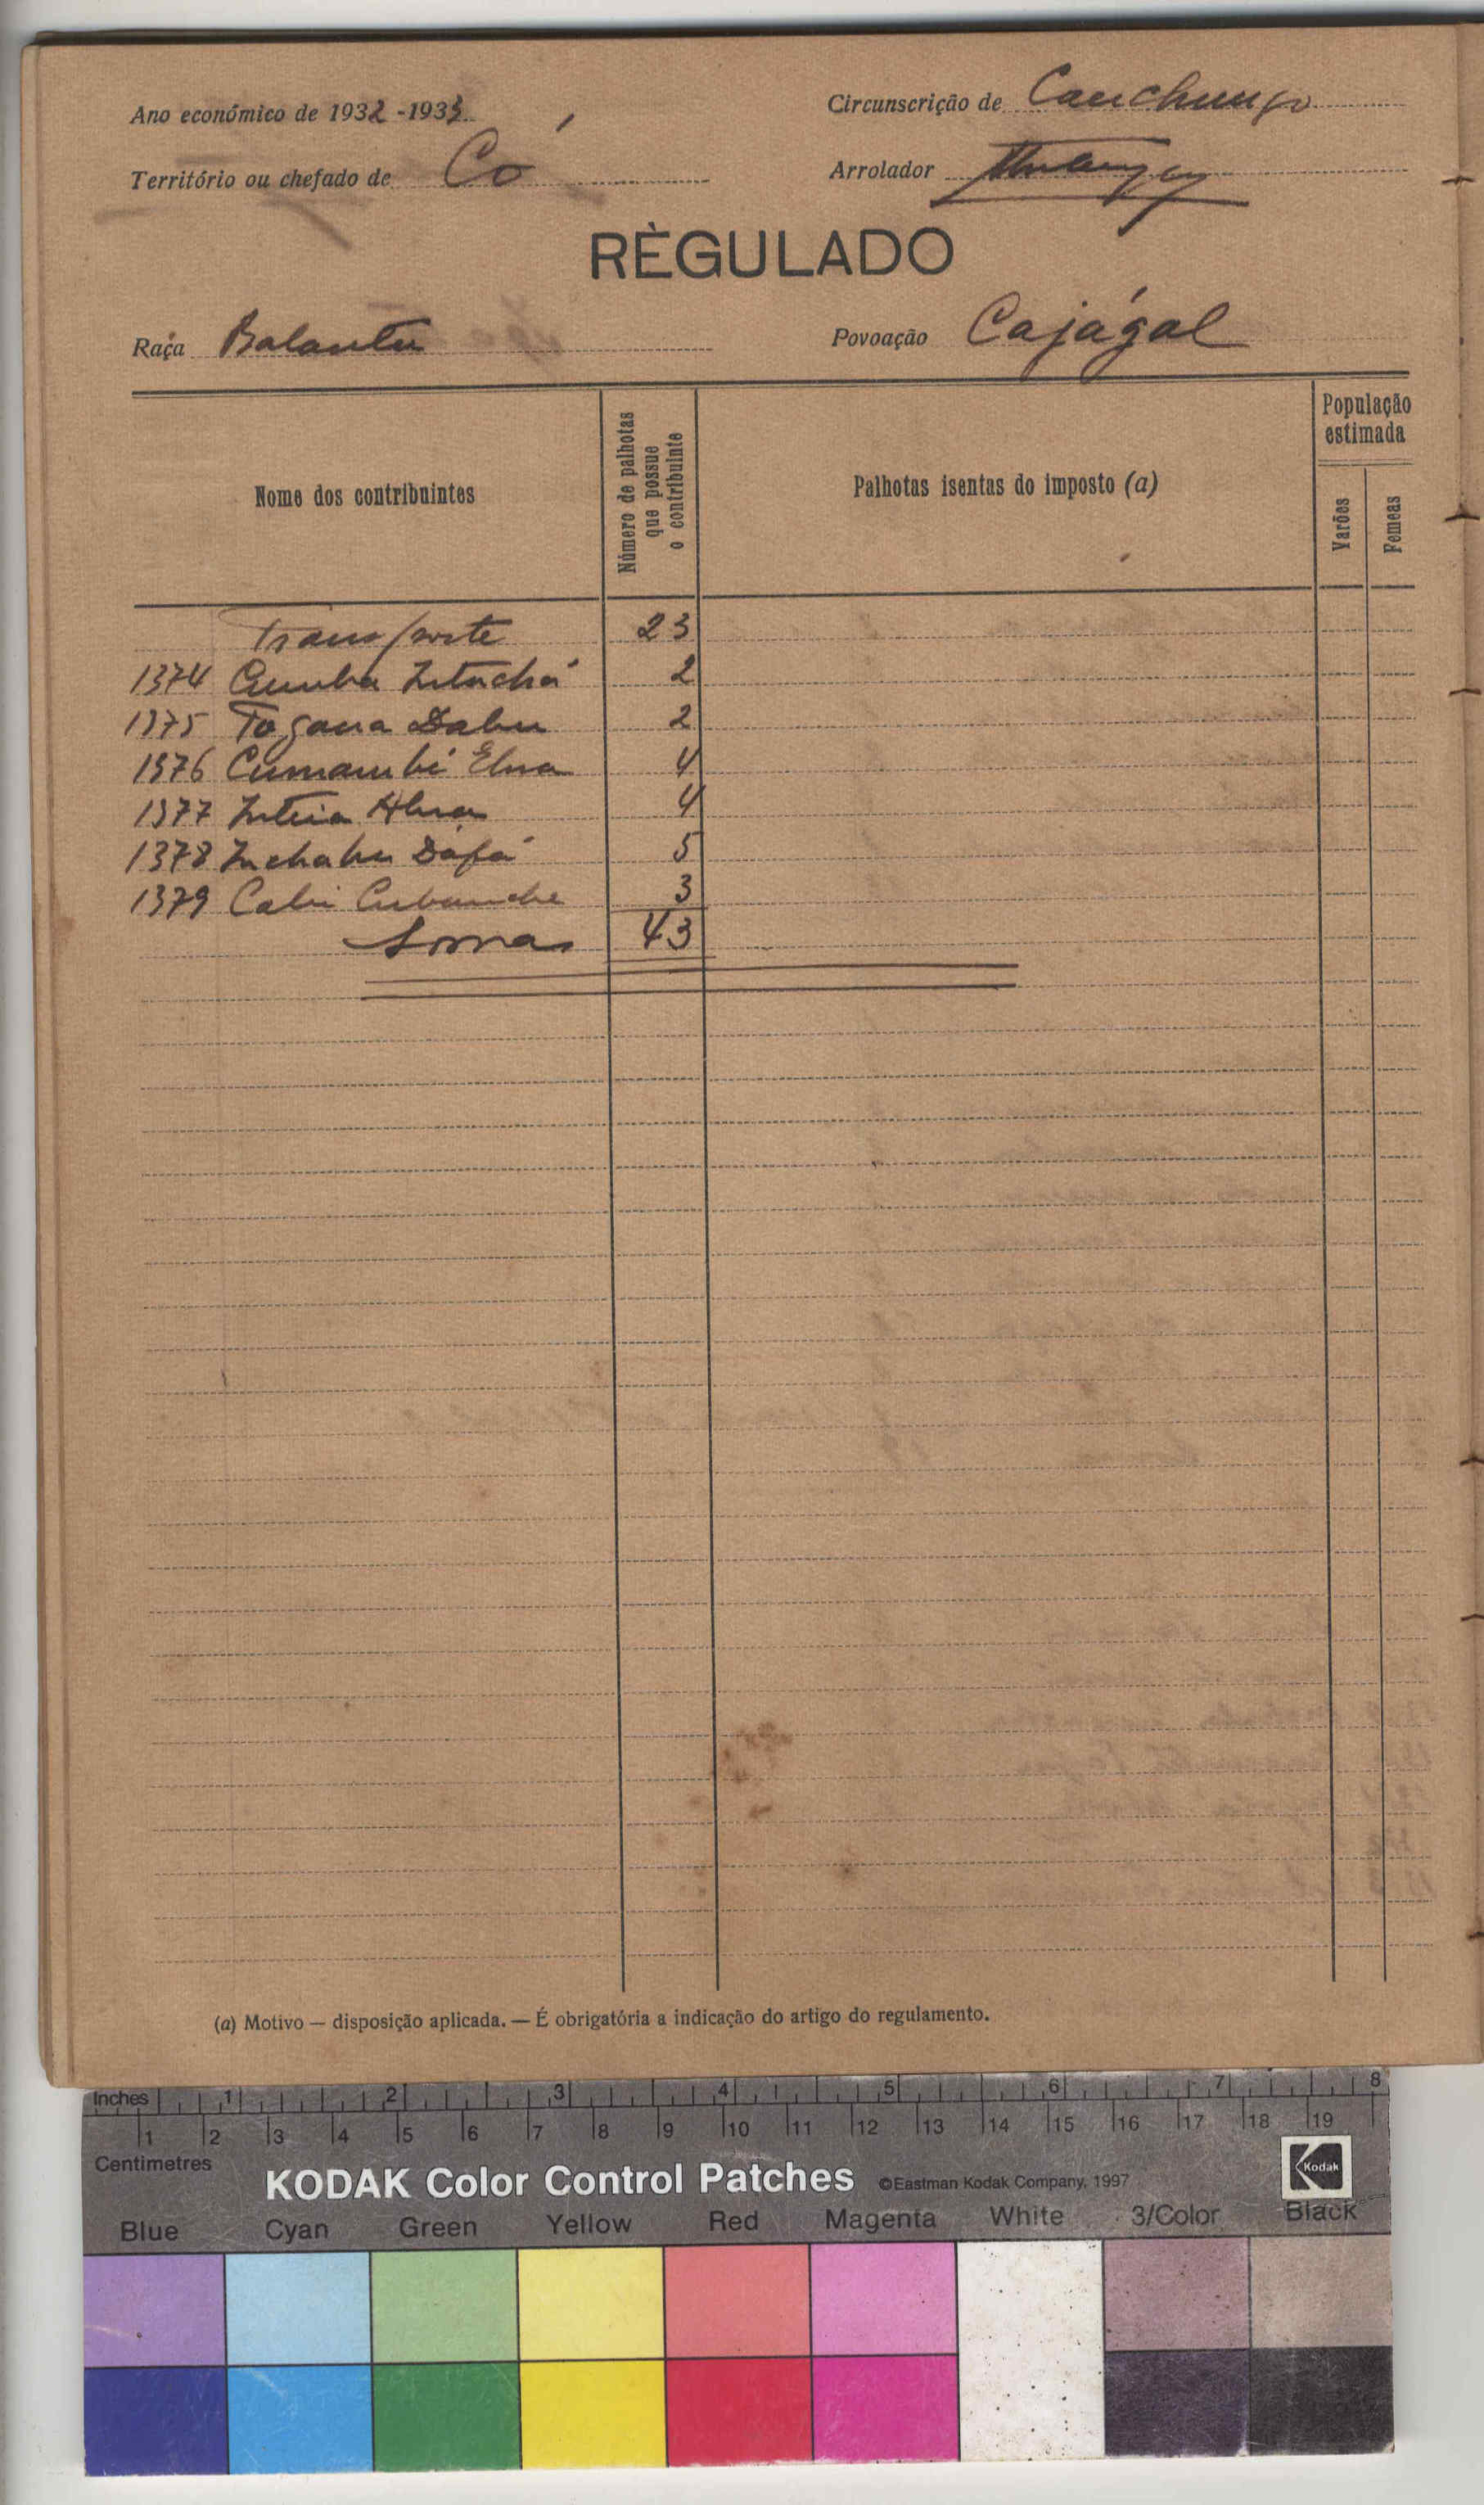 Ano económico de 1932-1933
Circunscrição de Canchungo
Território ou chefado de Có
Arrolador
RÈGULADO
Raça Balanta
Povoação Cajágal
Nome dos contribuintes
Número de palhotas que possue o contribuinte
Palhotas isentas do imposto (a)
População estimada
Varões
Femeas
Transporte 23
1374 Cumba Intachá 2
1375 Togana Dabu 2
1376 Cumambi 4
1377 Inteia 4
1378 Inchabu Dafá 5
1379 Cabi 3
Somas 43
(a) Motivo — disposição aplicada. — É obrigatória a indicação do artigo do regulamento.
Inches 1 2 3 4 5 6 7 8
1 2 3 4 5 6 7 8 9 10 11 12 13 14 15 16 17 18 19
Centimetres
KODAK Color Control Patches ©Eastman Kodak Company, 1997 Kodak
Blue Cyan Green Yellow Red Magenta White 3/Color Black